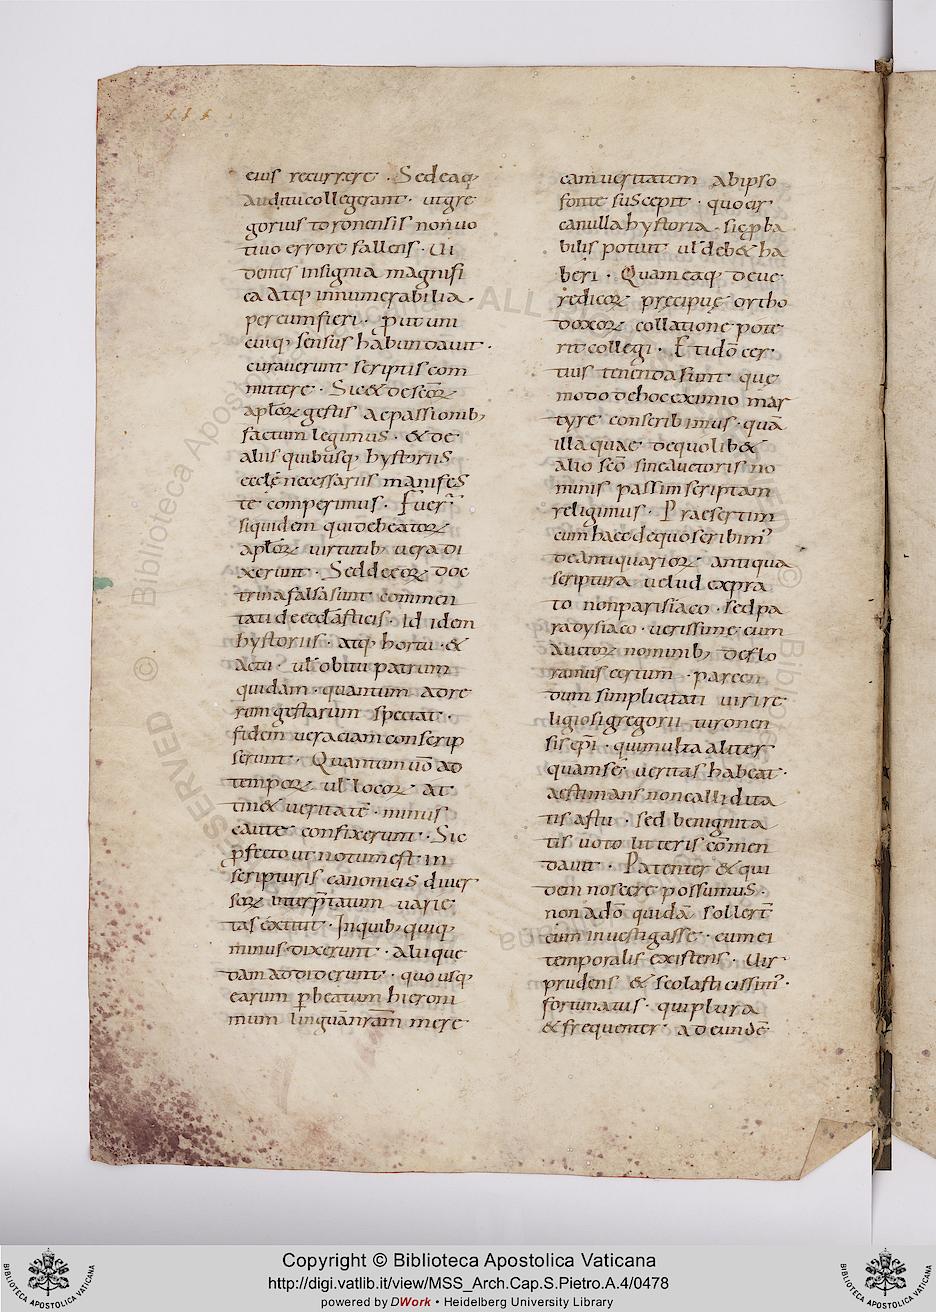 eius recurrere · Sed ea q;
auditu collegerant · ut gre
gorius toronensis non uo
tiuo errore fallens · Ui
dentes insignia magnifi
ca atq; innumerabilia ·
per eum fieri · ꝓut uni
cuiq; sensus habundauit ·
curauerunt scriptis com
mittere · Sic & de sc̄oꝝ
apl̄oꝝ gestis ac passionib;
factum legimus · & de
aliis quibusq; hystoriis
eccl̄ę necessariis manifes
te comperimus · Fuer̄
siquidem qui de beatoꝝ
apl̄oꝝ uirtutib; uera di
xerunt · Sed de eoꝝ doc
trina falsa sunt commen
tati de eccl̄āsticis · Id idem
hystoriis · atq; hortu · &
actu · ul̄ obitu patrum
quidam · quantum ad re
rum gestarum spectat ·
fidem ueraciam conscrip
serunt · Quantum uō ad
tempoꝝ ul̄ locoꝝ at
tin& ueritatē · minus
caute confixerunt · Sic
ꝓfecto ut notum est in
scripturis canonicis diuer
soꝝ interp̄tatum uarie
tas extitit · In quib; quiq;
minus dixerunt · aliique
dam addiderunt · quousq;
earum ꝑ beatum hieroni
mum linguān̄rām mere
eam ueritatem ab ipso
fonte suscepit · quo cir
ca nulla hystoria · sic ꝓba
bilis potuit ul̄ deb& ha
beri · Quam ea q; de ue
redicoꝝ pręcipuę ortho
doxoꝝ collatione pote
rit collegi · Et idō cer
tius tenenda sunt quę
modo de hoc eximio mar
tyre conscribimus · quā
illa quae de quolib&
alio sc̄o sine auctoris no
minis passim scriptam
religimus · Praesertim
cum haec de quo scribim᷒
de antiquarioꝝ antiqua
scriptura uelud expra
to non parisiaco · sed pa
radysiaco · uerissime cum
auctoꝝ nominib; deflo
ramus certum · parcen
dum simplicitati uiri re
ligiosi gregorii turonen
sis ep̄i · qui multa aliter
quam se ueritas habeat ·
aestimans non callidita
tis astu · sed benignita
tis uoto litteris cōmen
dauit · Patenter & qui
dem noscere possumus ·
non adō quidā sollert̄
eum inuestigasse · cum ei
temporalis existens · Uir
prudens & scolasticissim᷒ ·
fortunatus · qui plura
& frequenter ad eundē
Copyright © Biblioteca Apostolica Vaticana
http://digi.vatlib.it/view/MSS_Arch.Cap.S.Pietro.A.4/0478
powered by DWork • Heidelberg University Library